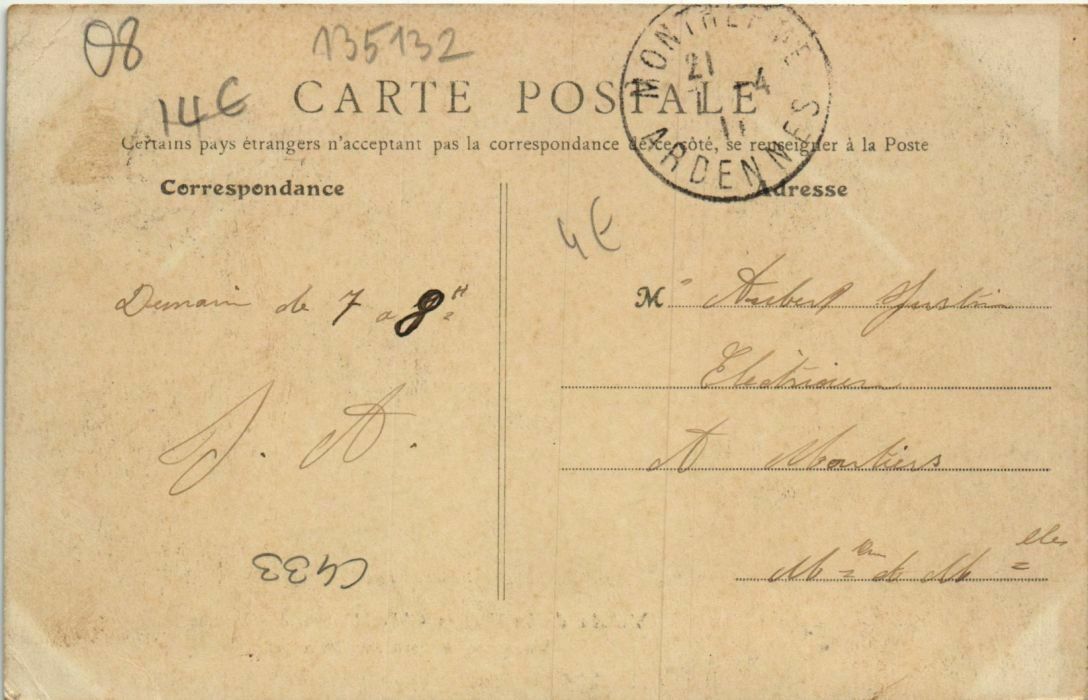 08
135132
14€
CARTE POSTALE
Certains pays étrangers n'acceptant pas la correspondance de ce côté, se renseigner à la Poste
MONTHERMÉ
21
4
11
ARDENNES
Correspondance
Adresse
4€
Demain de 7 a 8 H
J. A.
M Aubert Justin
Electricien
A
C433